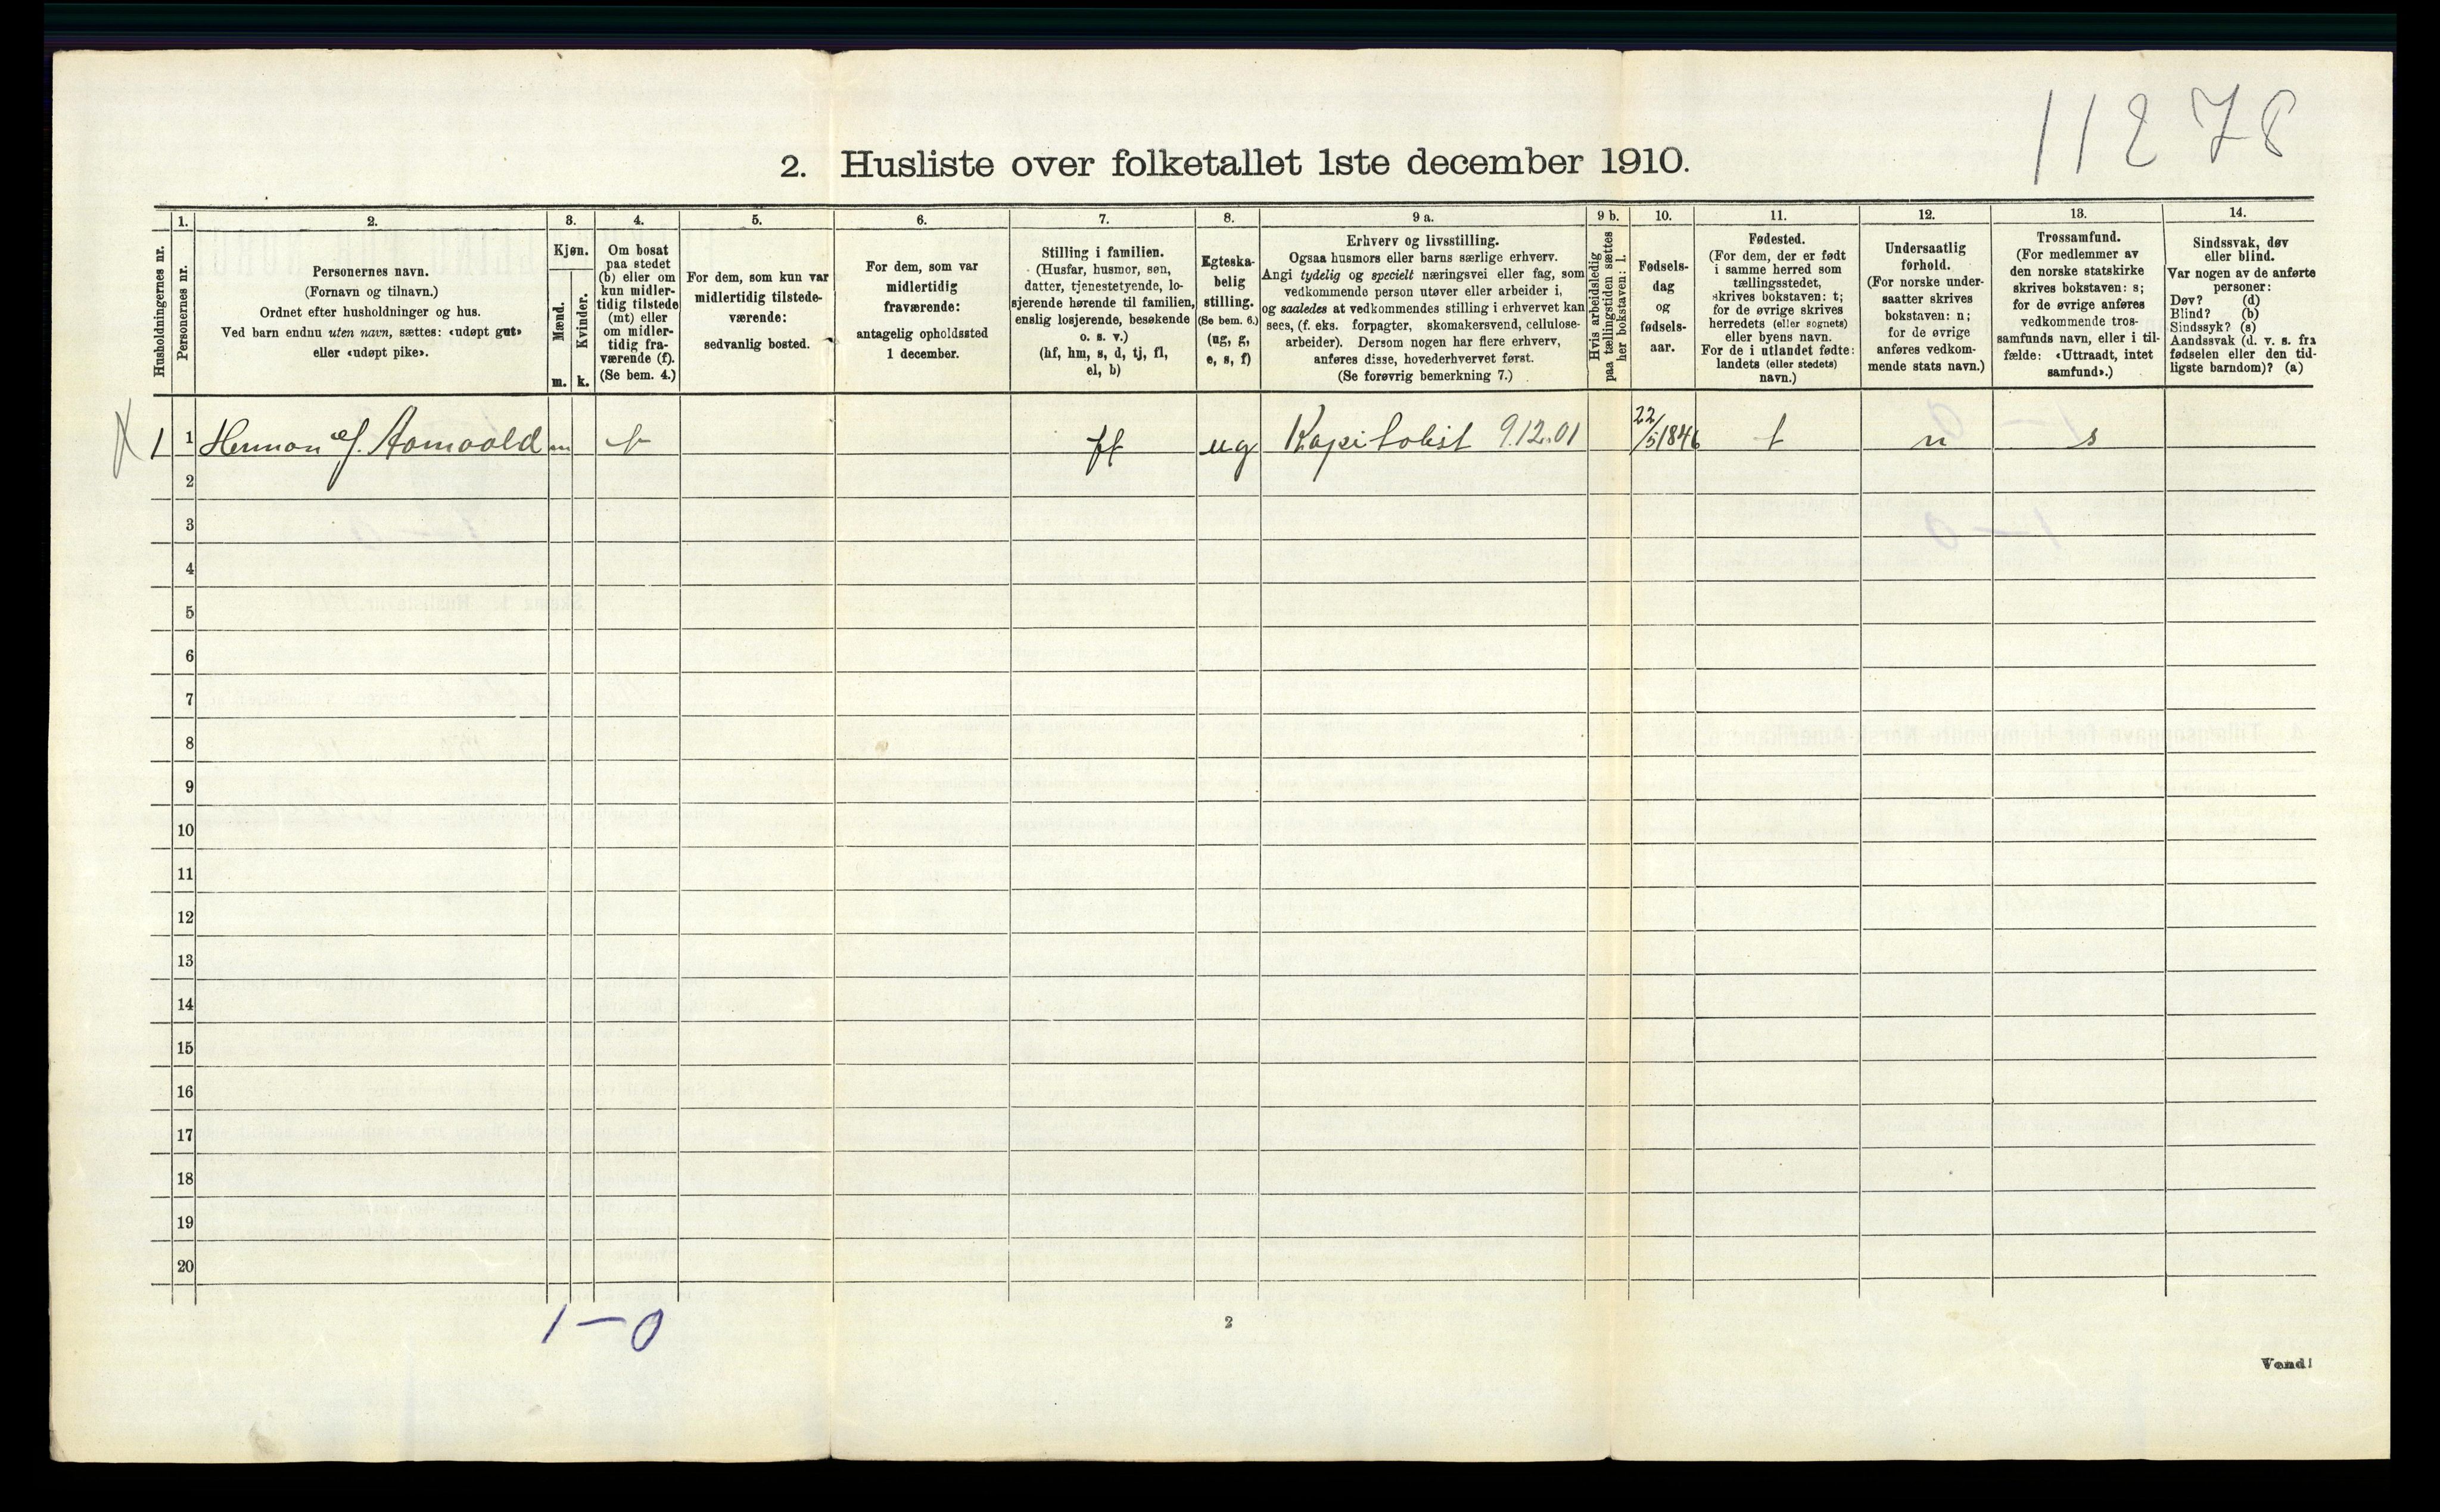 11278
2. Husliste over folketallet 1ste december 1910.
Husholdningernes nr.
1.
Personernes nr.
2.
Personernes navn.
(Fornavn og tilnavn.)
Ordnet efter husholdninger og hus.
Ved barn endnu uten navn, sættes: «udøpt gut»
eller «udøpt pike».
3.
Kjøn.
Mænd.
m.
Kvinder.
k.
4.
Om bosat
paa stedet
(b) eller om
kun midler-
tidig tilstede
(mt) eller
om midler-
tidig fra-
værende (f).
(Se bem. 4.)
5.
For dem, som kun var
midlertidig tilstede-
værende:
sedvanlig bosted.
6.
For dem, som var
midlertidig
fraværende:
antagelig opholdssted
1 december.
7.
Stilling i familien.
(Husfar, husmor, søn,
datter, tjenestetyende, lo-
sjerende hørende til familien,
enslig losjerende, besøkende
o. s. v.)
(hf, hm, s, d, tj, fl,
el, b)
8.
Egteska-
belig
stilling.
(Se bem. 6.)
(ug, g,
e, s, f)
9 a.
Erhverv og livsstilling.
Ogsaa husmors eller barns særlige erhverv.
Angi tydelig og specielt næringsvei eller fag, som
vedkommende person utøver eller arbeider i,
og saaledes at vedkommendes stilling i erhvervet kan
sees, (f. eks. forpagter, skomakersvend, cellulose-
arbeider). Dersom nogen har flere erhverv,
anføres disse, hovederhvervet først.
(Se forøvrig bemerkning 7.)
9 b.
Hvis arbeidsledig
paa tællingstiden sættes
her bokstaven: l.
10.
Fødsels-
dag
og
fødsels-
aar.
11.
Fødested.
(For dem, der er født
i samme herred som
tællingsstedet,
skrives bokstaven: t;
for de øvrige skrives
herredets (eller sognets)
eller byens navn.
For de i utlandet fødte:
landets (eller stedets)
navn.)
12.
Undersaatlig
forhold.
(For norske under-
saatter skrives
bokstaven: n;
for de øvrige
anføres vedkom-
mende stats navn.)
13.
Trossamfund.
(For medlemmer av
den norske statskirke
skrives bokstaven: s;
for de øvrige anføres
vedkommende tros-
samfunds navn, eller i til-
fælde: «Uttraadt, intet
samfund».)
14.
Sindssvak, døv
eller blind.
Var nogen av de anførte
personer:
Døv? (d)
Blind? (b)
Sindssyk? (s)
Aandssvak (d. v. s. fra
fødselen eller den tid-
ligste barndom)? (a)
X 1 1 Herman J. Aamodt m ug Kapitalist 9.12.01 22/5 1846 t n s
2
3
4
5
6
7
8
9
10
11
12
13
14
15
16
17
18
19
20
1 – 0
2
Vend!